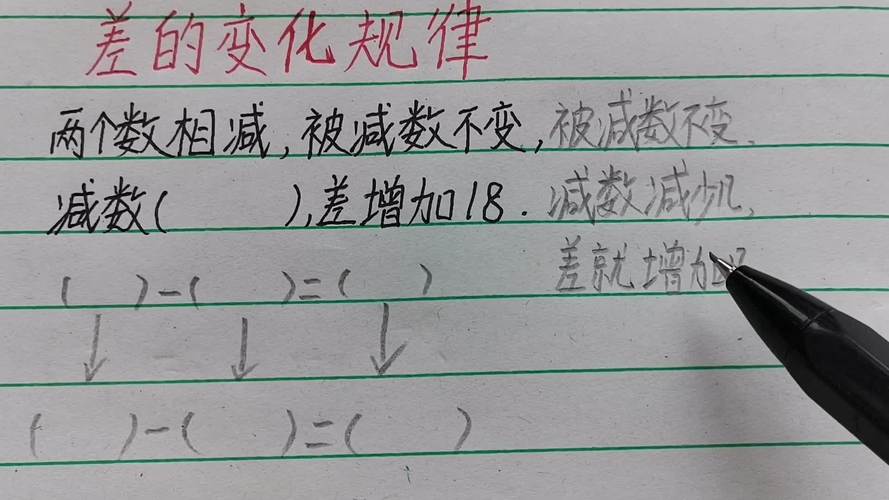 差的变化规律
两个数相减,被减数不变,
减数( ),差增加18.
( )-( )=( )
( )-( )=( )
被减数不变.
减数减少几,
差就增加